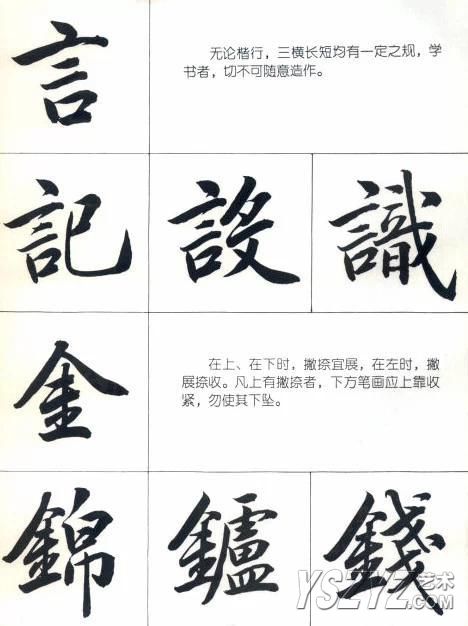 言
无论楷行，三横长短均有一定之规，学
书者，切不可随意造作。
記 設 識
金
在上、在下时，撇捺宜展，在左时，撇
展捺收。凡上有撇捺者，下方笔画应上靠收
紧，勿使其下坠。
錦 鑪 錢
YSZYZ艺术
.COM